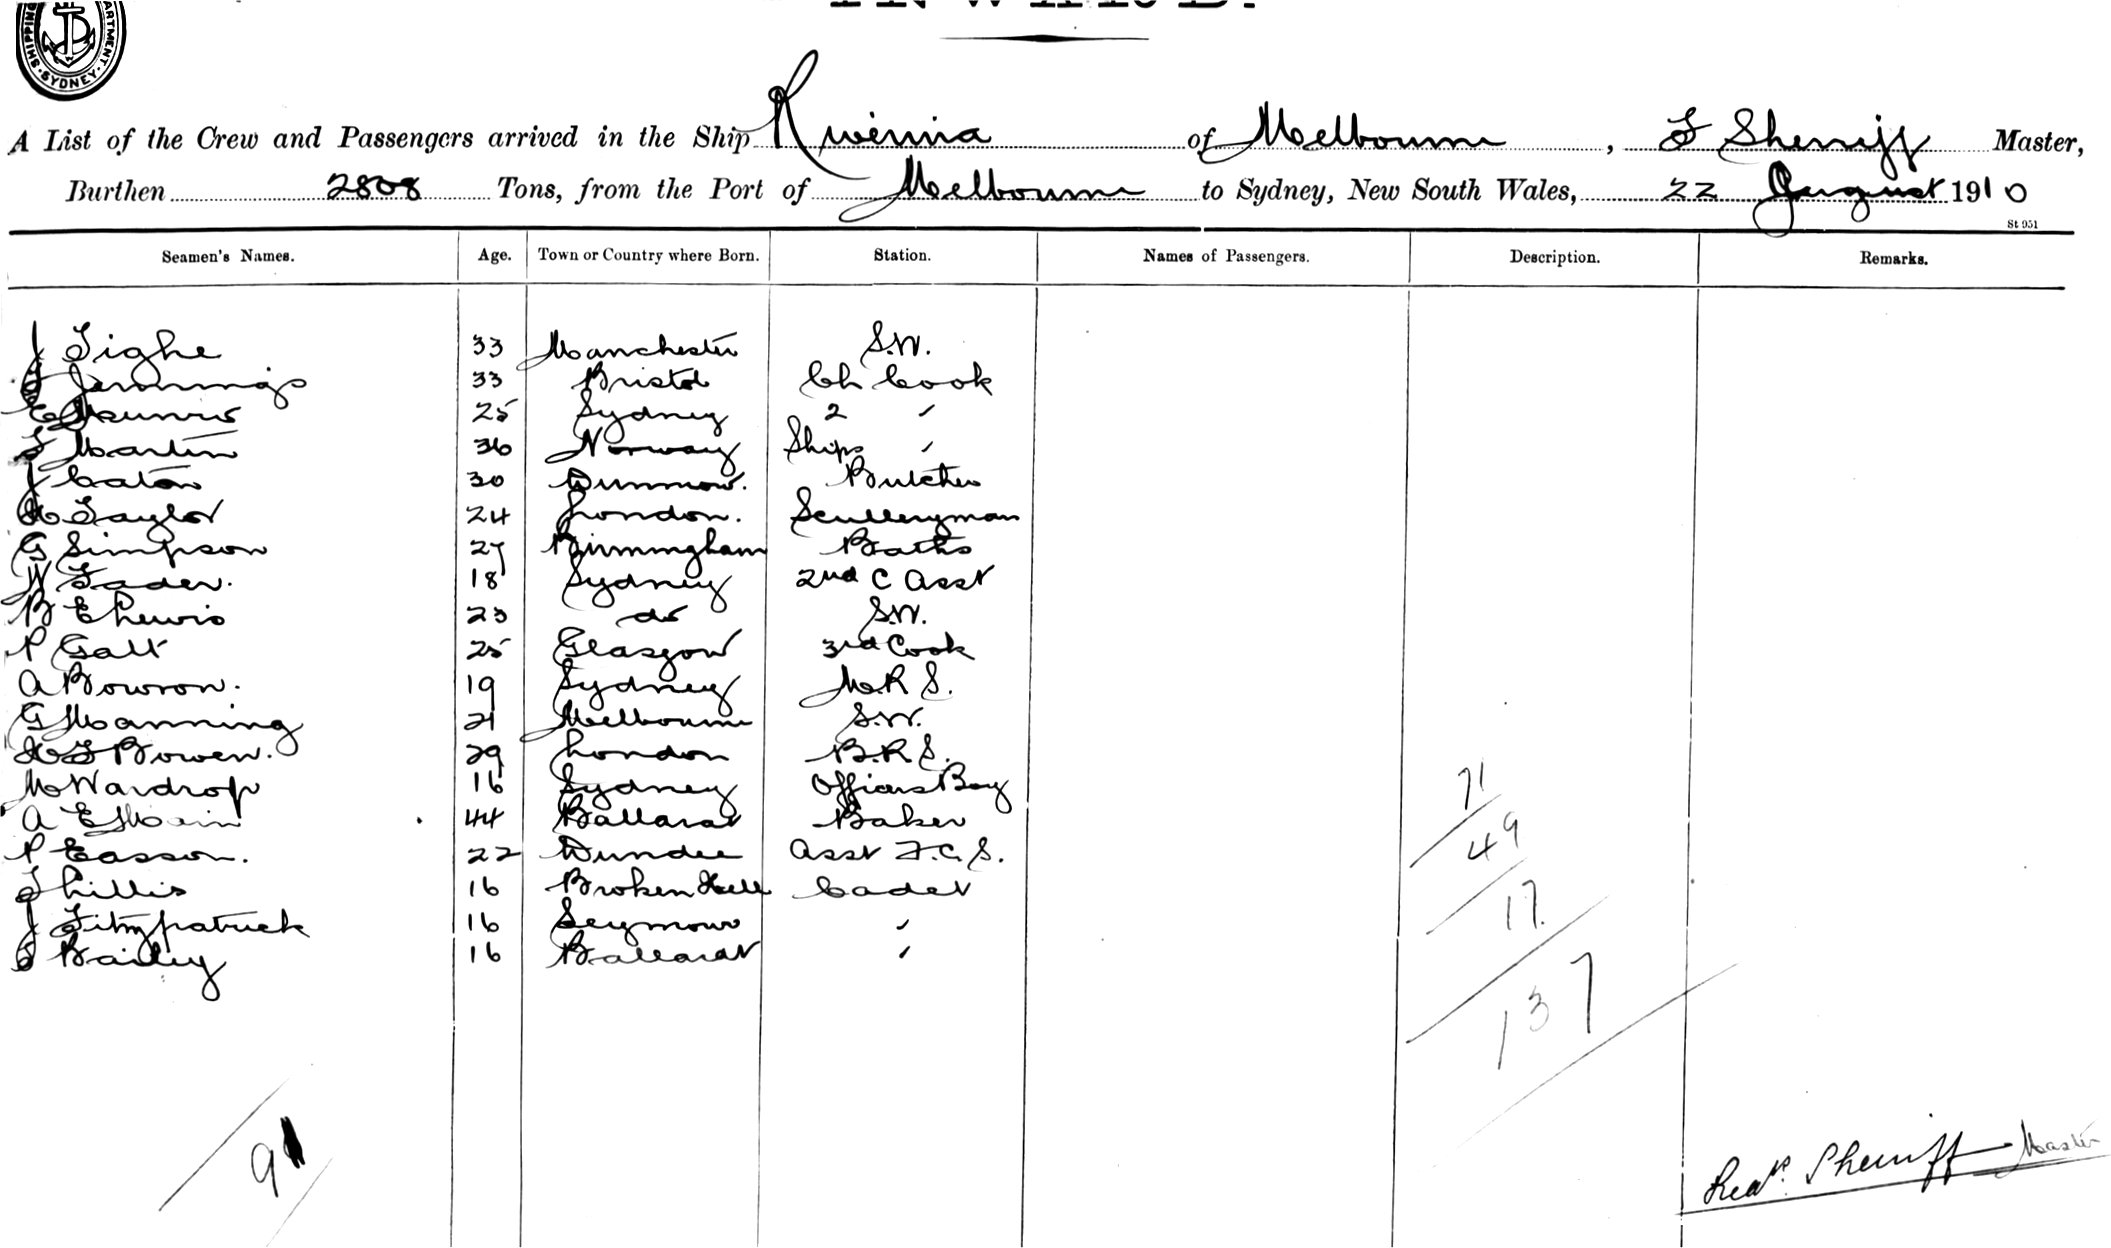 SHIPPING DEPARTMENT. SYDNEY
INWARD.
A List of the Crew and Passengers arrived in the Ship Riverina of Melbourne, F Sherriff Master,
Burthen 2808 Tons, from the Port of Melbourne to Sydney, New South Wales, 22 August 1910
St 951
Seamen's Names. Age. Town or Country where Born. Station. Names of Passengers. Description. Remarks.
J Tighe 33 Manchester S.W.
J Jennings 33 Bristol Ch Cook
C Munro 25 Sydney 2 "
F Martin 36 Norway Ships "
J Caton 30 Dunmow. Butcher
H Taylor 24 London. Sculleryman
G Simpson 27 Birmingham Baths
W Fader. 18 Sydney 2nd C Asst
B E Lewis 23 do S.W.
P Galt 25 Glasgow 3rd Cook
A Bowron. 19 Sydney M.R S.
G Manning 21 Melbourne S.W.
H F Bowen. 29 London B.R S.
M Wardrop 16 Sydney Officers Boy
A E Main 44 Ballarat Baker
P Easson. 22 Dundee Asst F.C.S.
T Lillis 16 Broken Hill Cadet
J Fitzpatrick 16 Seymour "
S Bailey 16 Ballarat "
71
49
17.
137
91
Sherriff Master